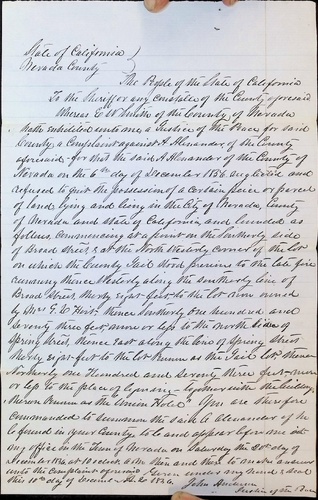 State of California )
Nevada County )
The People of the State of California
To the Sheriff or any Constable of the County aforesaid
Whereas E W of the County of Nevada
hath exhibited unto me a Justice of the Peace for said
County, a Complaint against A Alexander of the County
aforesaid for that the said A Alexander of the County of
Nevada on the 6th day of December 1856 neglected and
refused to quit the possession of a certain piece or parcel
of land lying and being in the City of Nevada, County
of Nevada and State of California, and bounded as
follows commencing at a point on the Southerly side
of Broad Street, & at the North Westerly corner of the lot
on which the County Jail stood previous to the late fire
running thence Westerly along the Southerly line of
Broad Street thirty eight feet to the lot now owned
by Mrs thence Southerly one hundred and
seventy three feet more or less to the North line of
Spring Street, thence East along the line of Spring Street
thirty eight feet to the lot known as the Jail lot thence
Northerly one Hundred and Seventy three feet more
or less to the place of beginning together with the building
thereon known as the "Union Hotel" You are therefore
commanded to summon the said A Alexander if he
be found in your County to be and appear before me at
my office in the Town of Nevada on Saturday the 20th day of
December at 10 o'clock then and there to make answer
unto the complaint aforesaid Given under my hand
this 10th day of December
John Anderson
Justice of the Peace